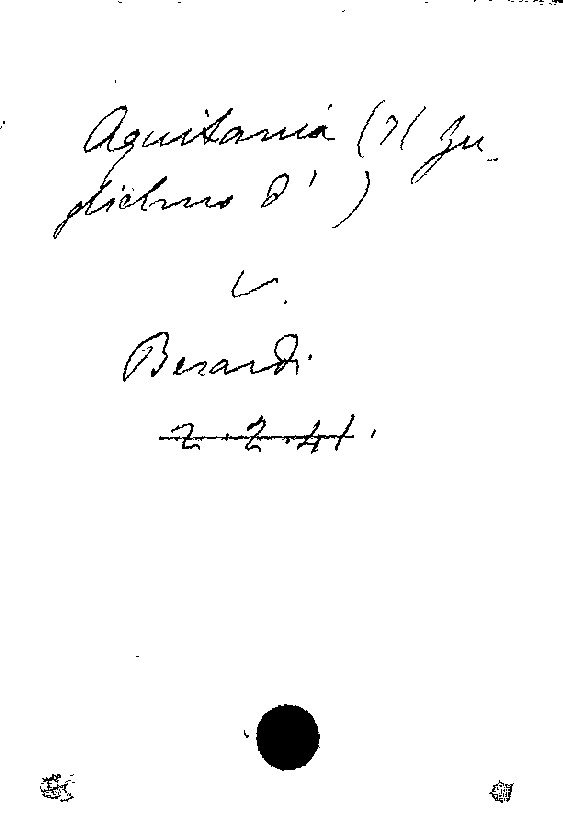 Aquitania (Il Gu-
glielmo d')
V.
Berardi
2.2.41.